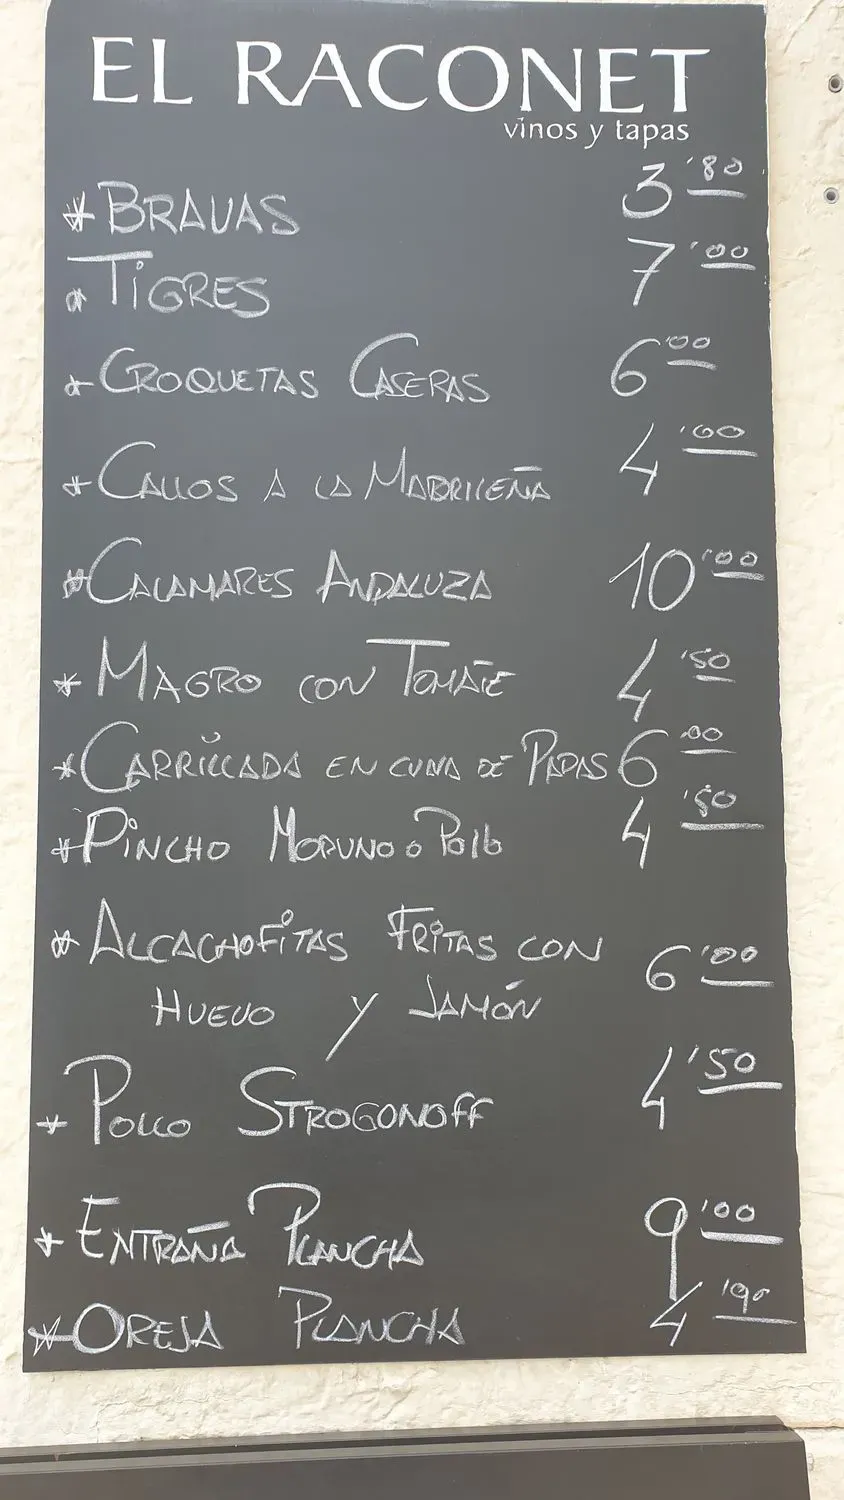 EL RACONET
vinos y tapas
* BRAVAS 3'80
* TIGRES 7'00
* CROQUETAS CASERAS 6'00
* CALLOS A LA MADRILEÑA 4'00
* CALAMARES ANDALUZA 10'00
* MAGRO CON TOMATE 4'50
* CARRILLADA EN CUNA DE PAPAS 6'00
* PINCHO MORUNO O Pollo 4'50
* ALCACHOFITAS FRITAS CON
HUEVO Y JAMÓN 6'00
* POLLO STROGONOFF 4'50
* ENTRAÑA PLANCHA 9'00
* OREJA PLANCHA 4'90